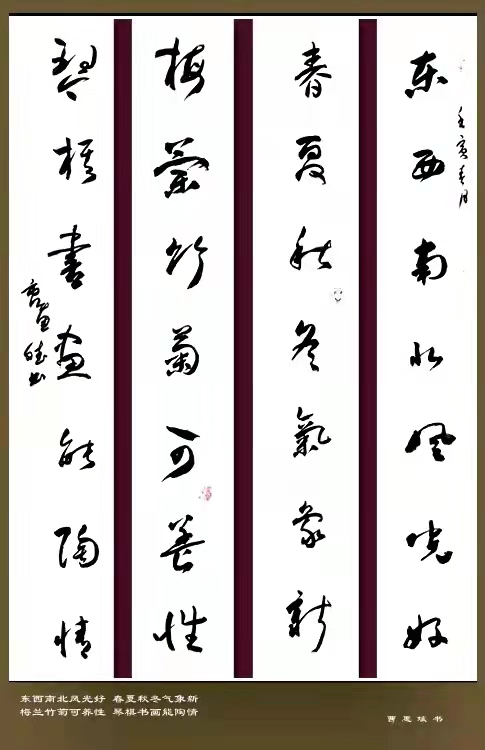 壬寅春月
东西南北风光好
春夏秋冬氣象新
梅蘭竹菊可养性
琴棋書畫能陶情
东西南北风光好 春夏秋冬气象新
梅兰竹菊可养性 琴棋书画能陶情